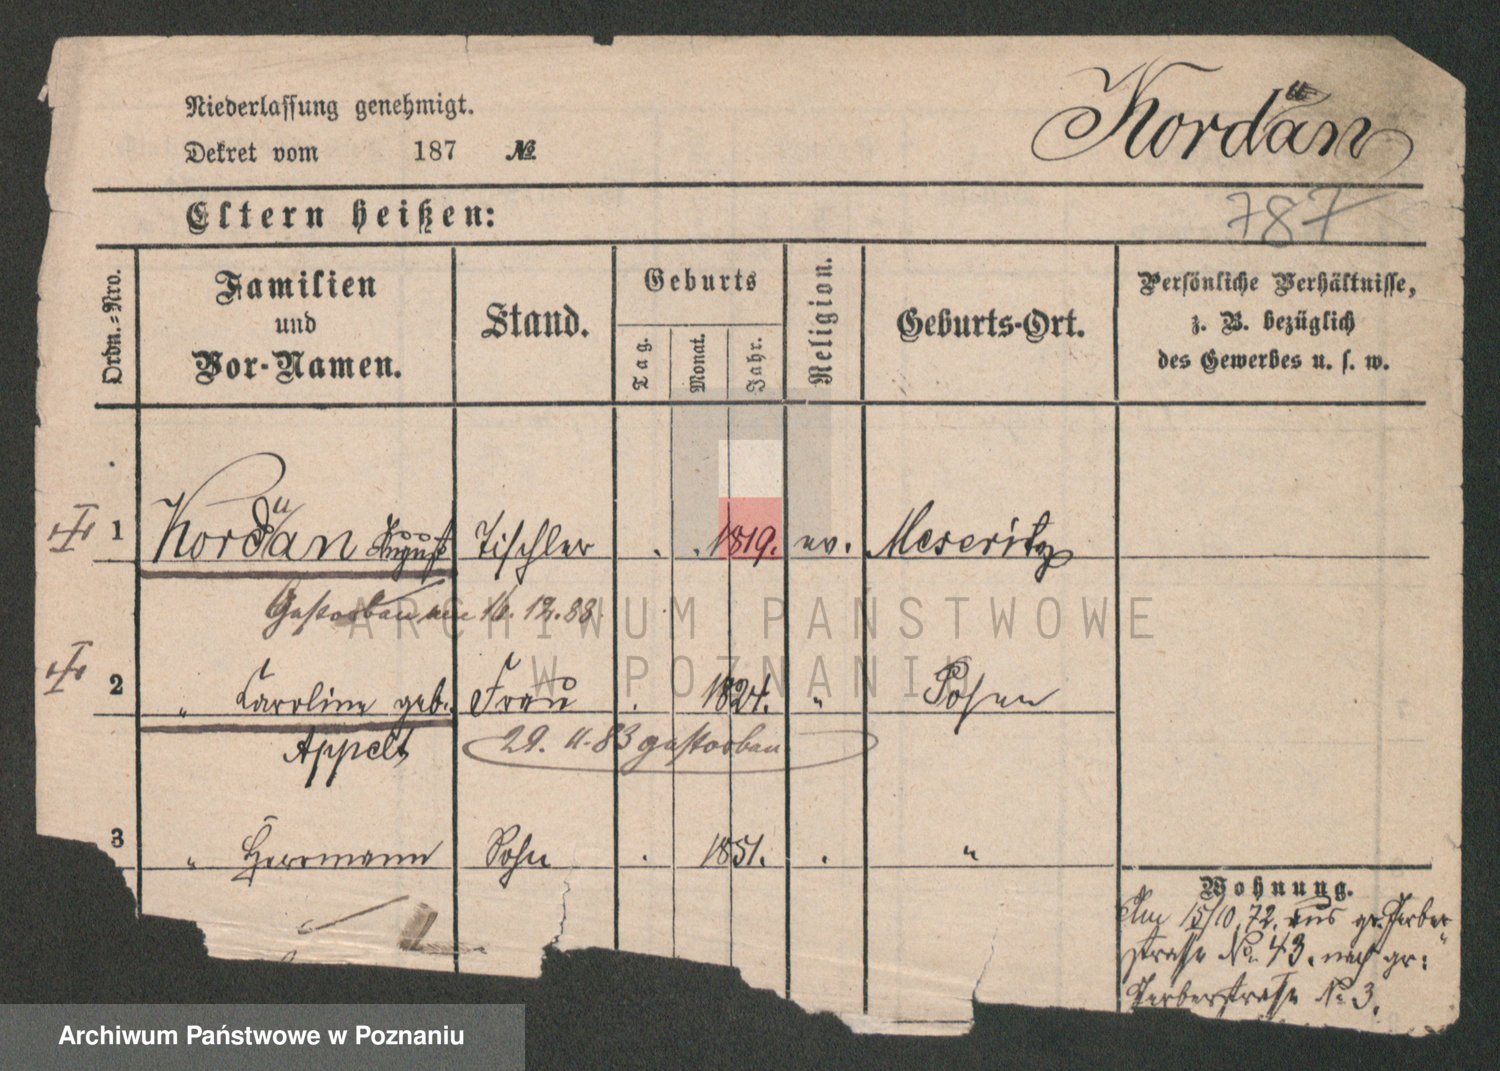 Niederlassung genehmigt.
Dekret vom 187 №
Kordän
787
Eltern heißen:
Ordn.-Nro.
Familien und Vor-Namen.
Stand.
Geburts
Tag.
Monat.
Jahr.
Religion.
Geburts-Ort.
Persönliche Verhältnisse, z. B. bezüglich des Gewerbes u. s. w.
1 Kordän August Tischler . . 1819. ev. Meseritz
Gestorben am 16. 12. 88
2 " Caroline geb. Frau . 1824. " Posen
Appelt 29. 11. 83 gestorben
3 " Herrmann Sohn . 1851. . "
Wohnung.
Am 15/10. 72. aus gr. Gerber
strasse No 43. nach gr.
Gerberstrasse No 3.
ARCHIWUM PAŃSTWOWE
W POZNANIU
Archiwum Państwowe w Poznaniu